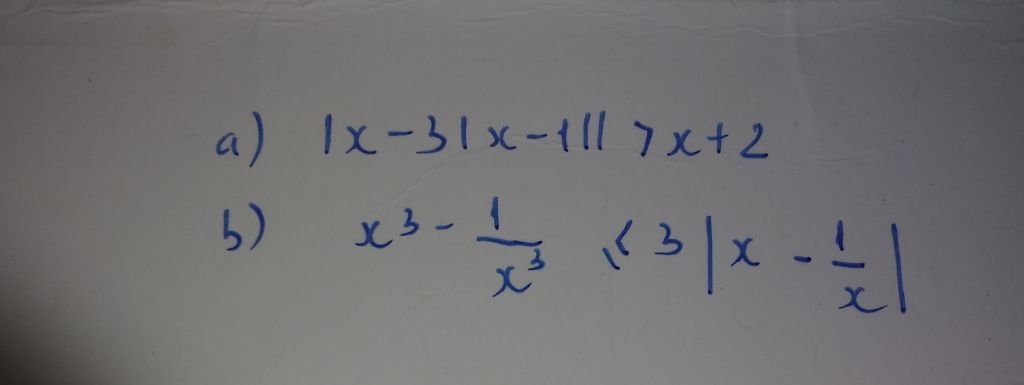 a) |x-3|x-1|| > x+2
b) x³ - 1/x³ ≤ 3 |x - 1/x|